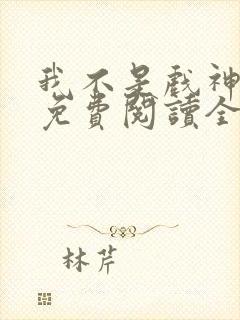 我不是戏神
免費閱讀全
林芹